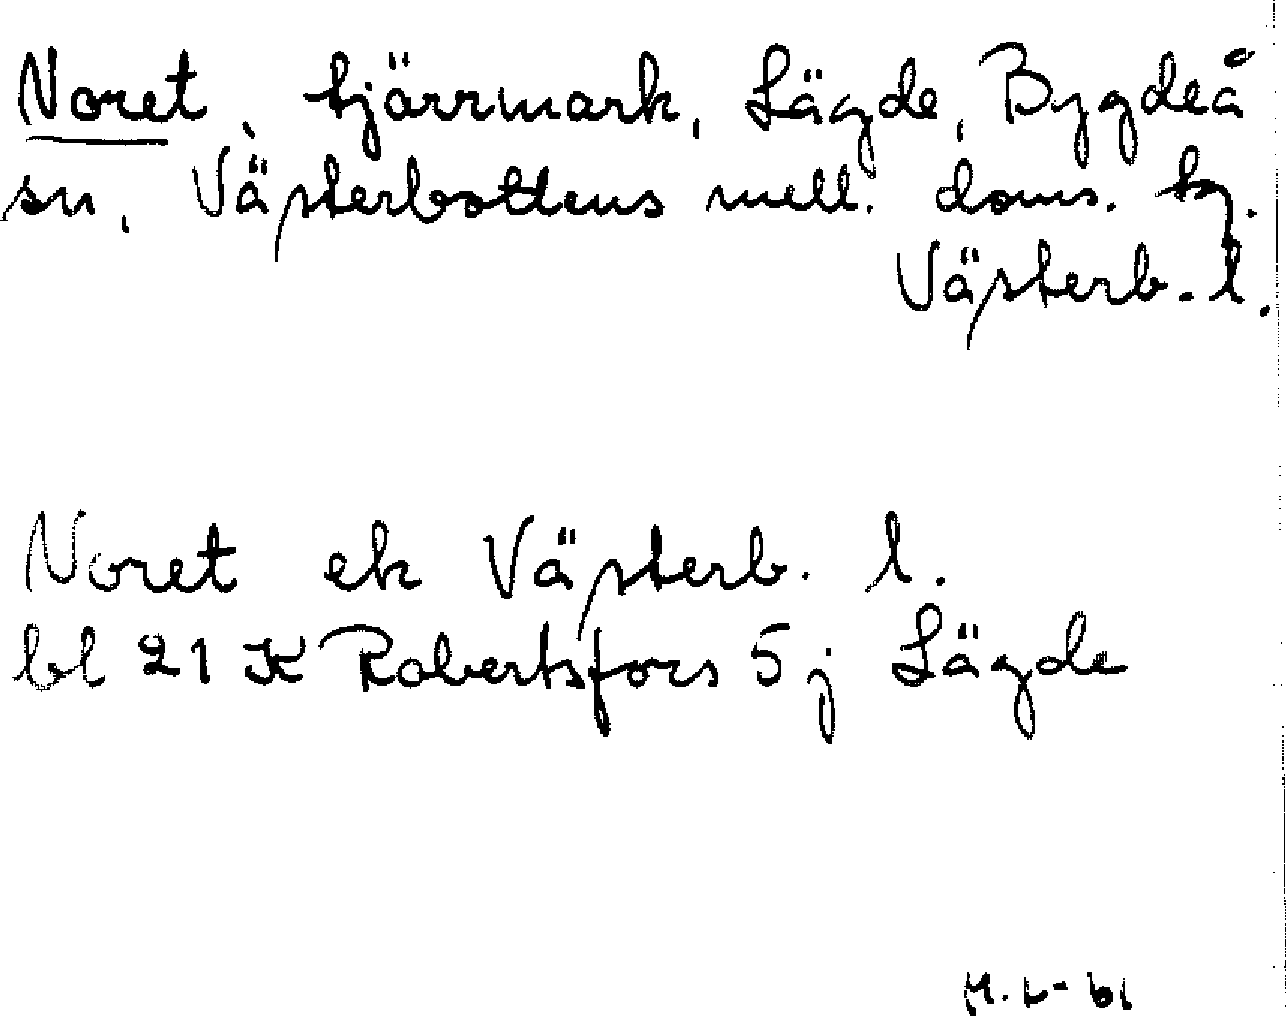 Noret, kjärrmark, Lägde, Bygdeå
sn, Västerbottens mell. doms. tg.
Västerb. l.
Noret ek Västerb. l.
bl 21 K Robertsfors 5 j Lägde